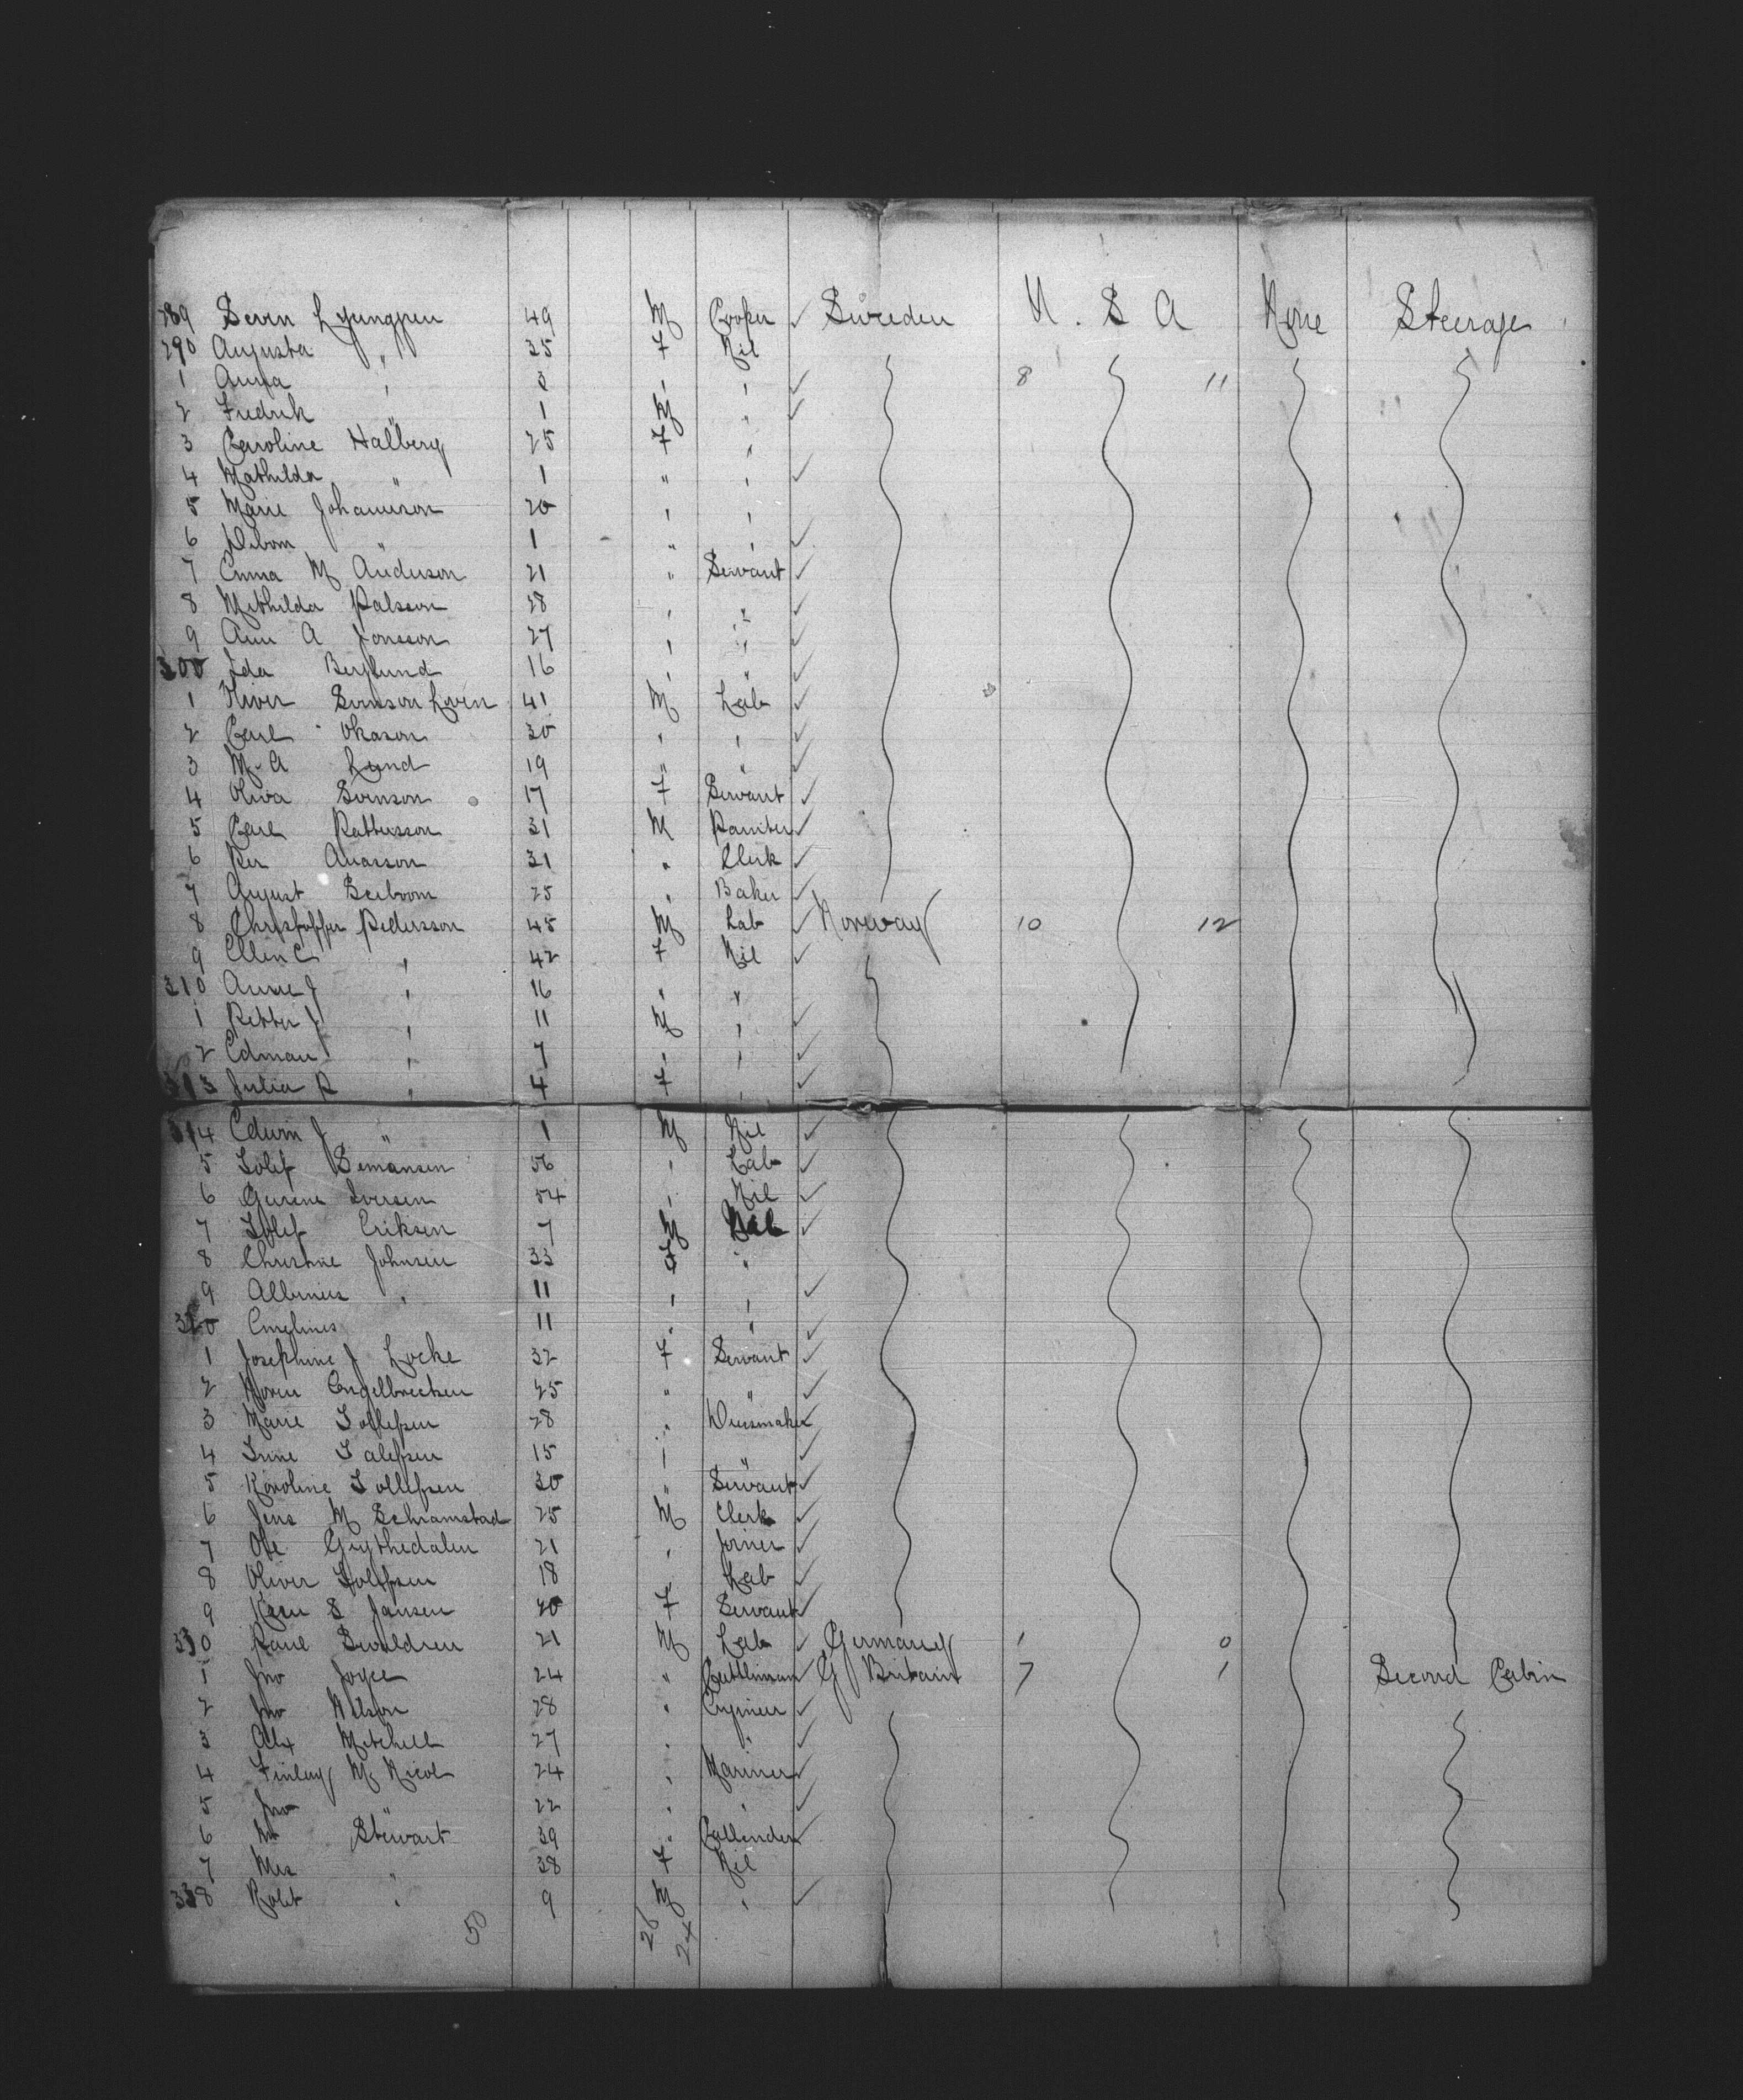 289 Sven Ljungpen 49 M Cooper ✓ Sweden U. S A None Steerage
290 Augusta " 35 F Nil
1 Anna " 3 " " ✓ 8 11
2 Fredrik " 1 M " ✓
3 Caroline Halberg 25 F "
4 Mathilda " 1 " " ✓
5 Marie Johanneson 20 " "
6 " 1 " " ✓
7 Emma M Anderson 21 " Servant ✓
8 Mathilda Palsson 28 " " ✓
9 Ann A Jonsson 27 " " ✓
300 Ida Berglund 16 " " ✓
1 Svenson Loven 41 M Lab ✓
2 Carl Okason 30 " " ✓
3 M. A Lund 19 " " ✓
4 Oliva Svenson 17 F Servant ✓
5 Carl Pattersson 31 M Painter ✓
6 Per Anasson 31 " Clerk ✓
7 August Seebom 25 " Baker ✓
8 Christoffer Pedersson 45 M Lab ✓ Norway 10 12
9 Ellen C " 42 F Nil ✓
310 Anne J " 16 " "
1 Petter J " 11 M " ✓
2 Edman " 7 " " ✓
313 Julia P " 4 F " ✓
314 Edwin J " 1 M Nil ✓
5 Tolef Semansen 56 " Lab ✓
6 Gurine Iversen 54 " Nil ✓
7 Tolef Eriksen 7 M ✓
8 Christine Johnsen 33 F "
9 Albinus " 11 " " ✓
320 Emelius 11 " " ✓
1 Josephine J Locke 32 F Servant ✓
2 Engelbrecksen 25 " " ✓
3 Marie Tollefsen 28 " Dressmaker ✓
4 Tine Talefsen 15 " " ✓
5 Karoline Tollefsen 30 " Servant ✓
6 Jens M Schramstad 25 M Clerk ✓
7 Ole Grythedalen 21 " Joiner ✓
8 Oliver Tollefsen 18 " Lab ✓
9 Karen S Jansen 20 F Servant ✓
330 Paul 21 M Lab ✓ Germany 1 0
1 Jno Joyce 24 " Cattleman ✓ G Britain 7 1 Second Cabin
2 Jno Wilson 28 " Engineer ✓
3 Alex Mitchell 27 " " ✓
4 Finlay Mc Nicol 24 " Mariner ✓
5 Jno " 22 " " ✓
6 Mr Stewart 39 " Callender ✓
7 Mrs " 38 F Nil
338 Robt " 9 M " ✓
50 26 24